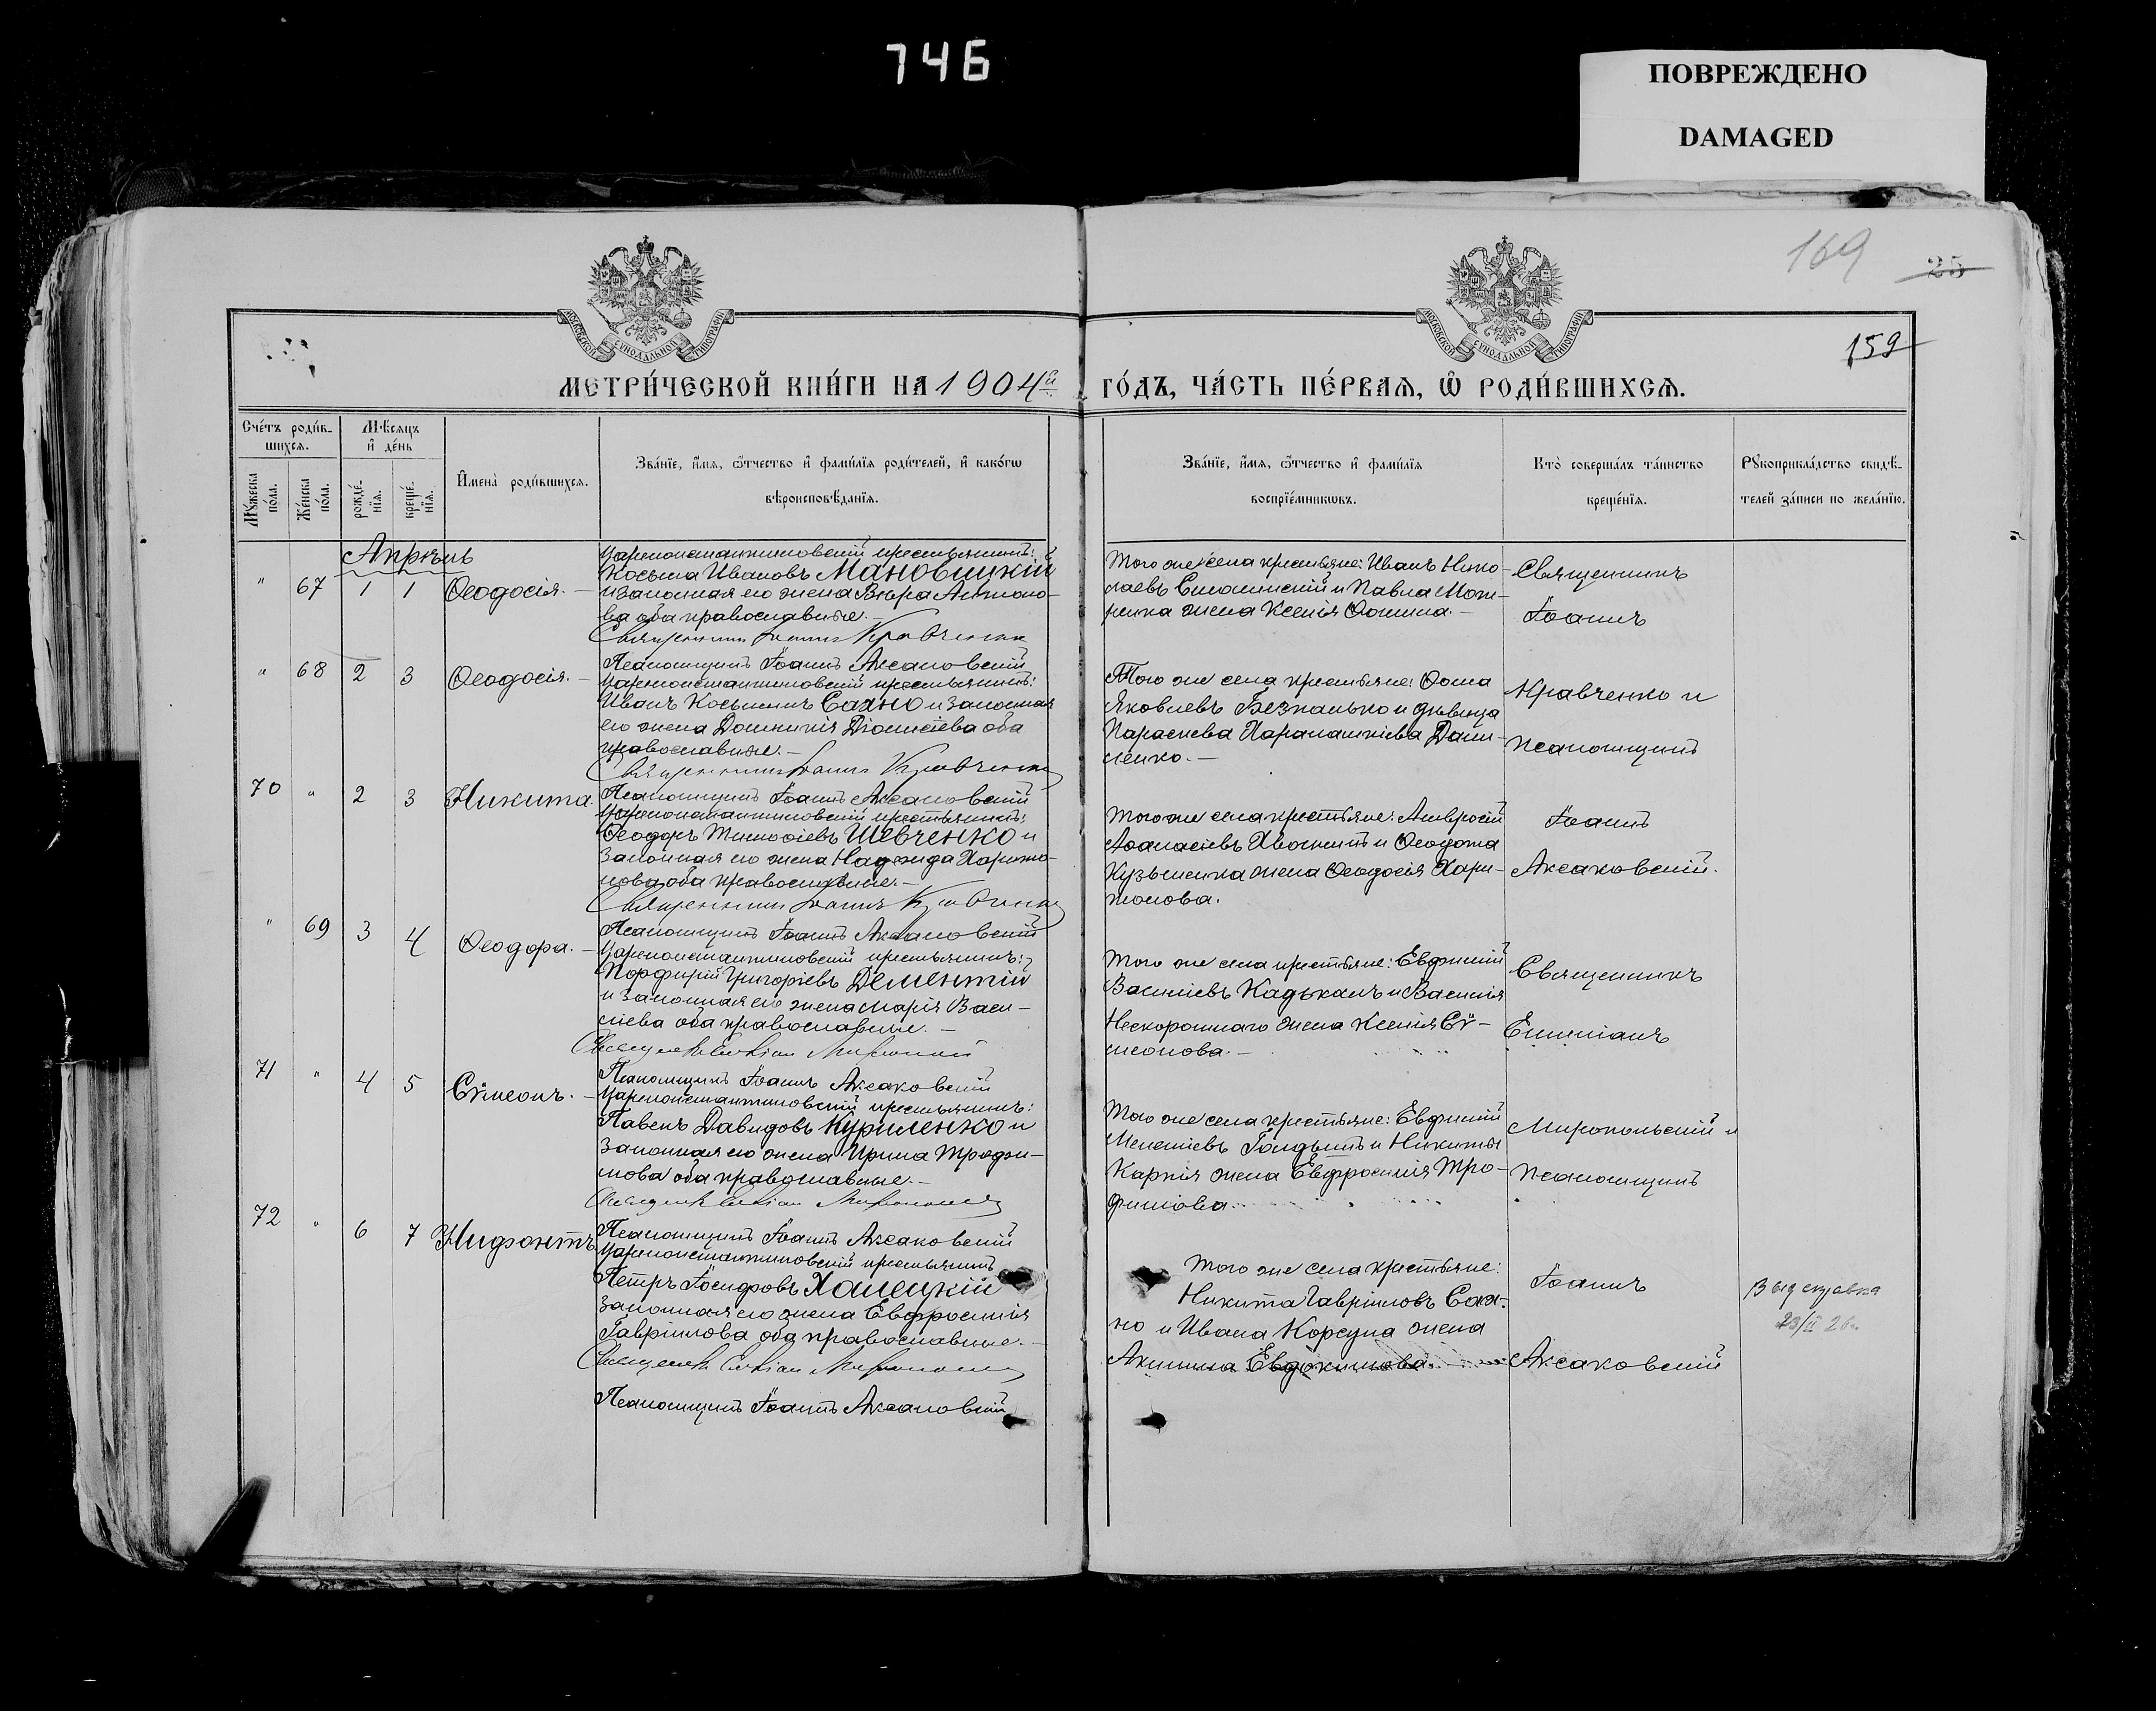 746
ПОВРЕЖДЕНО
DAMAGED
169
25
159
МОСКОВСКОЙ СѴНОДАЛЬНОЙ ТИПОГРАФІИ
МОСКОВСКОЙ СѴНОДАЛЬНОЙ ТИПОГРАФІИ
МЕТРИ́ЧЕСКОЙ КНИ́ГИ НА 1904й ГО́ДЪ, ЧА́СТЬ ПЕ́РВАѦ, Ѽ РОДИ́ВШИХСѦ.
Сче́тъ роди́в-
шихсѧ.
Мѣ́сѧцъ
и҆ де́нь
Мꙋ́жеска
по́ла.
Же́нска
по́ла.
рожде́-
нїѧ.
креще́-
нїѧ.
И҆мена̀ роди́вшихсѧ.
Зва́нїе, и҆́мѧ, ѻ҆́тчество и҆ фамі́лїѧ роди́телей, и҆ како́гѡ
вѣроисповѣ́данїѧ.
Зва́нїе, и҆́мѧ, ѻ҆́тчество и҆ фамі́лїѧ
воспрїе́мникѡвъ.
Кто̀ соверша́лъ та́инство
креще́нїѧ.
Рꙋкоприкла́дство свидѣ́-
телей за́писи по жела́нїю.
Апрѣль
" 67 1 1 Ѳеодосія. —
Цареконстантиновскій крестьянинъ:
Косьма Ивановъ Мановицкій
и законная его жена Вѣра Антоно-
ва оба православные. —
Священникъ Іоаннъ Кравченко
Псаломщикъ Іоаннъ Аксаковскій
Того же села крестьяне: Иванъ Нико-
лаевъ Смолинскій и Павла
жена Ксенія Ѳомина. —
Священникъ
Іоаннъ
" 68 2 3 Ѳеодосія. —
Цареконстантиновскій крестьянинъ:
Иванъ Косьминъ Сахно и законная
его жена Домникія Діонисіева оба
православные. —
Священникъ Іоаннъ Кравченко
Псаломщикъ Іоаннъ Аксаковскій
Того же села крестьяне: Ѳома
Яковлевъ Безпалько и дѣвица
Параскева Харалампіева Дани-
ленко. —
Кравченко и
псаломщикъ
70 " 2 3 Никита.
Цареконстантиновскій крестьянинъ:
Ѳеодоръ Тимоѳіевъ Шевченко и
законная его жена Надежда Харито-
нова оба православные. —
Священникъ Іоаннъ Кравченко
Псаломщикъ Іоаннъ Аксаковскій
Того же села крестьяне: Амвросій
Аѳанасіевъ и Ѳеодота
Кузьменка жена Ѳеодосія Хари-
тонова.
Іоаннъ
Аксаковскій.
" 69 3 4 Ѳеодора. —
Цареконстантиновскій крестьянинъ:
Порфирій Григоріевъ Дементій
и законная его жена Марія Васи-
ліева оба православные. —
Псаломщикъ Іоаннъ Аксаковскій
Того же села крестьяне: Евфимій
Василіевъ Кадькалъ и Василія
Нескоромнаго жена Ксенія Сѵ-
меонова. —
Священникъ
Емиліанъ
71 " 4 5 Сѵмеонъ. —
Цареконстантиновскій крестьянинъ:
Павелъ Давидовъ Куриленко и
законная его жена Ирина Трофи-
мова оба православные. —
Псаломщикъ Іоаннъ Аксаковскій
Того же села крестьяне: Евфимій
Мелетіевъ и Никиты
Карпія жена Евфросинія Тро-
фимова.
Миропольскій и
псаломщикъ
72 " 6 7 Нифонтъ
Цареконстантиновскій крестьянинъ
Петръ Іосифовъ Халецкій и
законная его жена Евфросинія
Гавріилова оба православные. —
Псаломщикъ Іоаннъ Аксаковскій
Того же села крестьяне:
Никита Гавріиловъ Сах-
но и Ивана Корсуна жена
Акилина Евдокимова. —
Іоаннъ
Аксаковскій
Выд справка
23/II 26г.